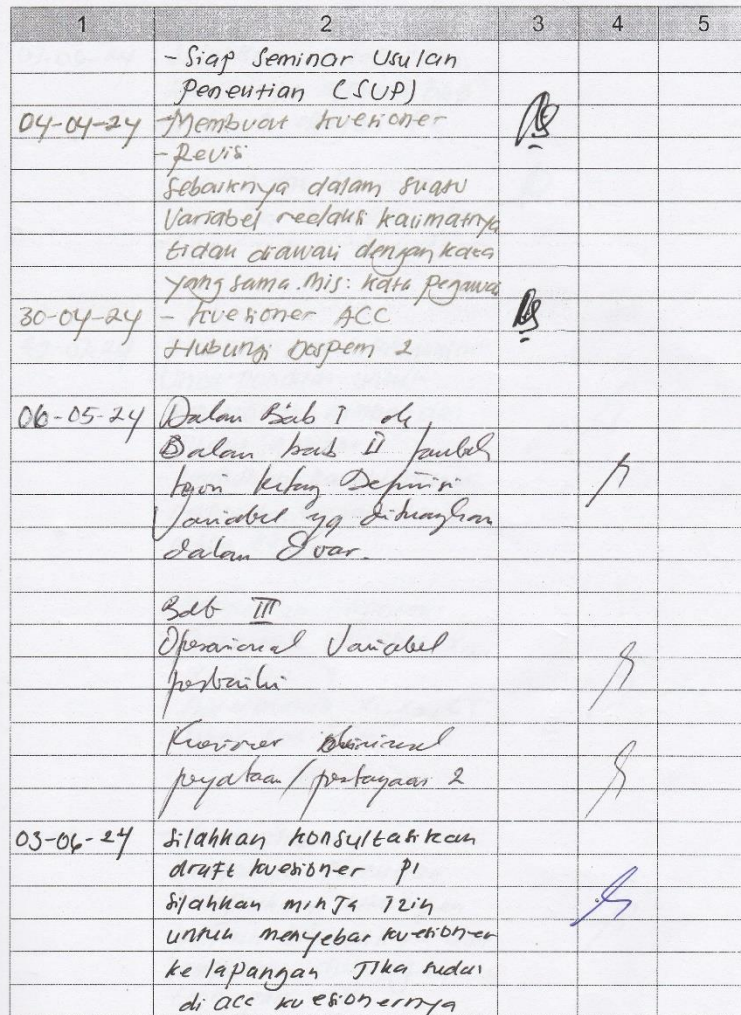 1 2 3 4 5
- Siap Seminar Usulan
Penelitian (SUP)
04-04-24 - Membuat kuesioner
- Revisi
Sebaiknya dalam suatu
Variabel redaksi kalimatnya
tidak diawali dengan kata
yang sama. Mis: kata pegawai
30-04-24 - kuesioner ACC
Hubungi Dospem 2
06-05-24 Dalam Bab I ok
Dalam bab II tambah
teori Definisi
Variabel yg dituangkan
dalam Ovar.
Bab III
Operasional Variabel
perbaiki
Kuesioner minimal
peryataan/pertanyaan 2
03-06-24 Silahkan konsultasikan
draft kuesioner P1
Silahkan minta izin
untuk menyebar kuesioner
ke lapangan Jika sudah
di acc kuesionernya